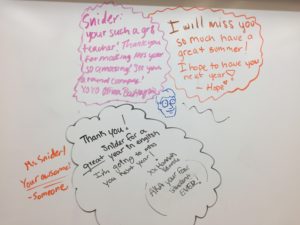 Snider:
your such a gr8
teacher! Thank you
for making this year
so amazing! See you
around campus!
XOXO
I will miss you
so much have a
great summer!
I hope to have you
next year!
~ Hope
Thank you!
Snider for a
great year in english
I'm going to miss
you next year
XX Hannah
AKA your fav
student
EVER!
Mr. Snider!
Your awesome!
-Someone